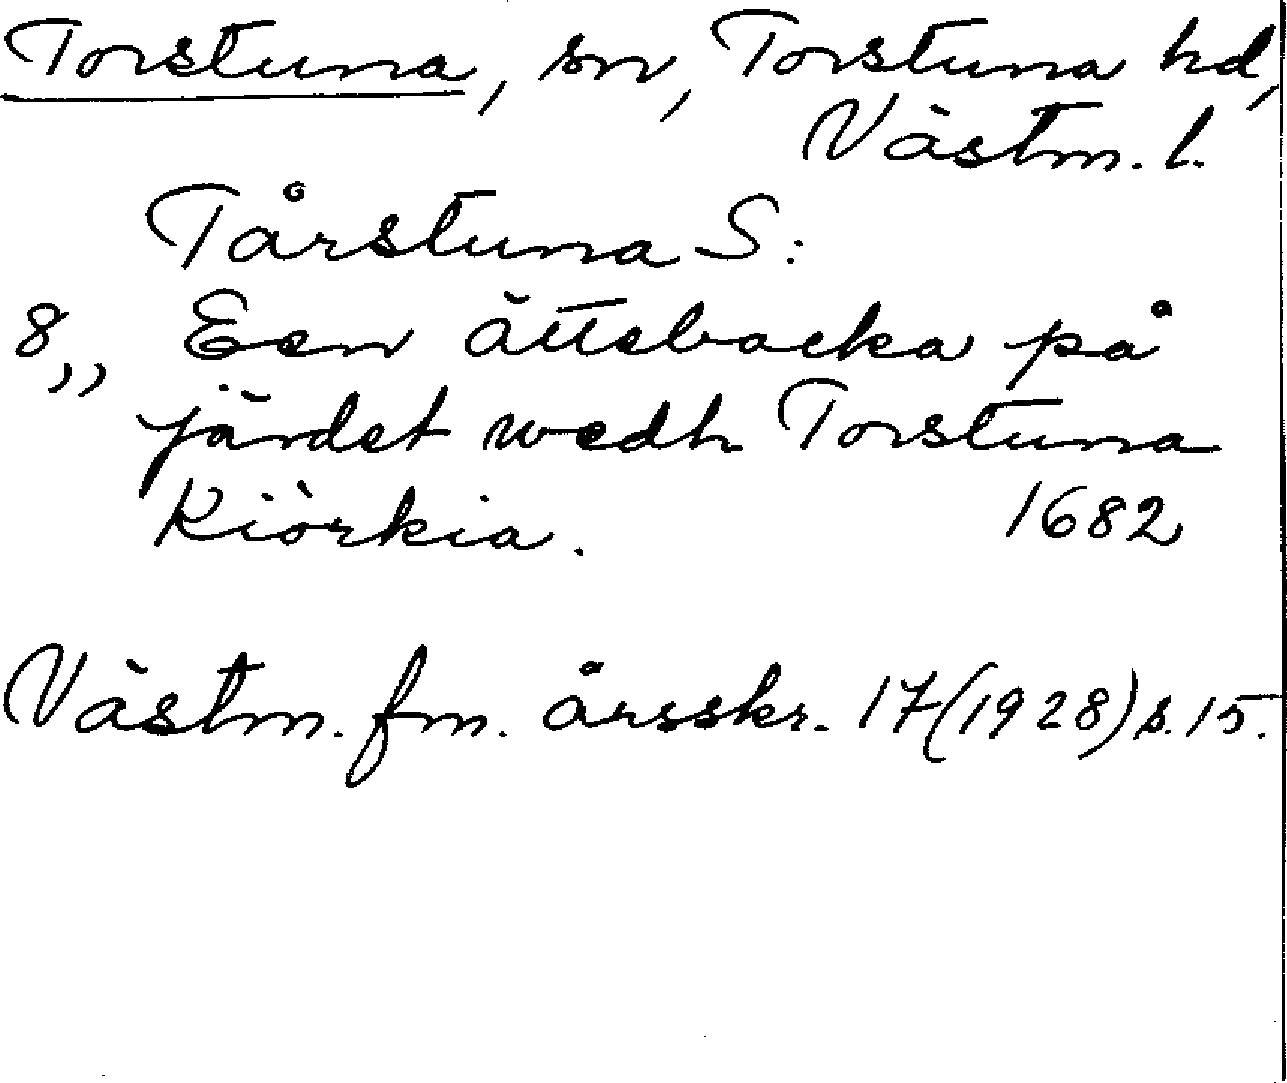 Torstuna, sn, Torstuna hd,
Västm. l.
Tårstuna S:
8,, Een ättebacka på
järdet wedh Torstuna
Kiörkia. 1682
Västm. fm. årsskr. 17(1928) s. 15.